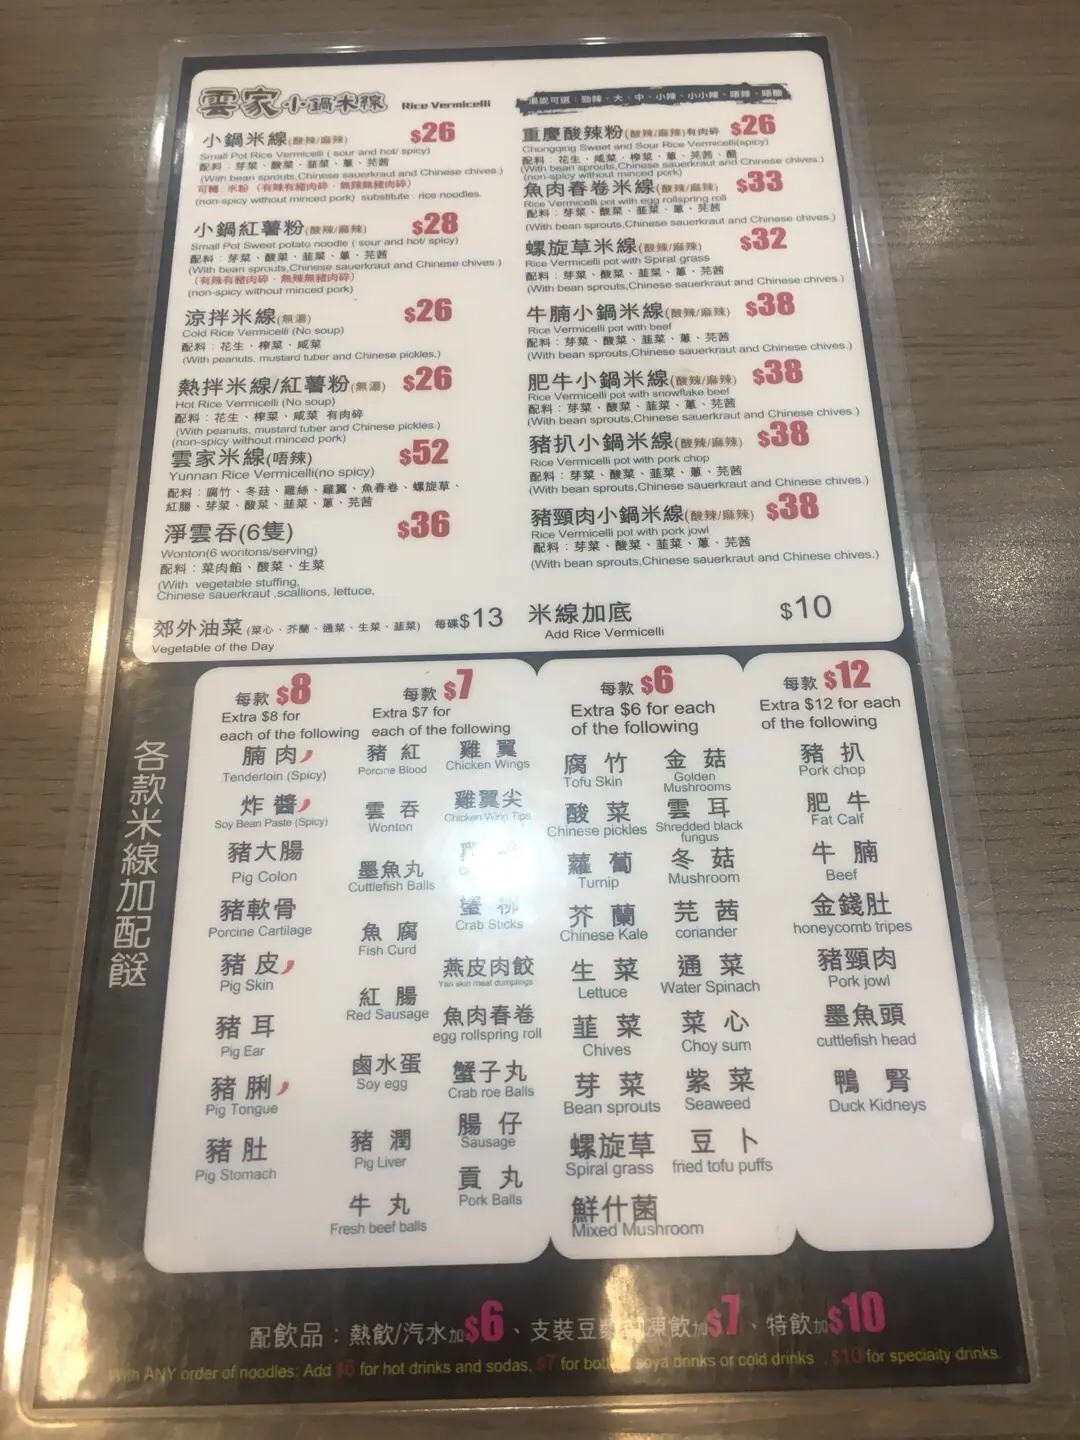 雲家小鍋米線 Rice Vermicelli
湯底可選：勁辣、大、中、小辣、小小辣、唔辣、唔酸
小鍋米線(酸辣/麻辣) $26
Small Pot Rice Vermicelli ( sour and hot/ spicy)
配料：芽菜、酸菜、韮菜、蔥、芫茜
(With bean sprouts,Chinese sauerkraut and Chinese chives.)
可轉 米粉（有辣有豬肉碎．無辣無豬肉碎）
(non-spicy without minced pork) substitute : rice noodles.
小鍋紅薯粉(酸辣/麻辣) $28
Small Pot Sweet potato noodle ( sour and hot/ spicy)
配料：芽菜、酸菜、韮菜、蔥、芫茜
(With bean sprouts,Chinese sauerkraut and Chinese chives.)
（有辣有豬肉碎．無辣無豬肉碎）
(non-spicy without minced pork)
涼拌米線(無湯) $26
Cold Rice Vermicelli (No soup)
配料：花生、榨菜、咸菜
(With peanuts, mustard tuber and Chinese pickles.)
熱拌米線/紅薯粉(無湯) $26
Hot Rice Vermicelli (No soup)
配料：花生、榨菜、咸菜 有肉碎
(With peanuts, mustard tuber and Chinese pickles.)
(non-spicy without minced pork)
雲家米線(唔辣) $52
Yunnan Rice Vermicelli(no spicy)
配料：腐竹、冬菇、雞絲、雞翼、魚春卷、螺旋草、
紅腸、芽菜、酸菜、韮菜、蔥、芫茜
淨雲吞(6隻) $36
Wonton(6 wontons/serving)
配料：菜肉餡、酸菜、生菜
(With vegetable stuffing,
Chinese sauerkraut ,scallions, lettuce,
郊外油菜 (菜心、芥蘭、通菜、生菜、韮菜) 每碟$13
Vegetable of the Day
重慶酸辣粉(酸辣/麻辣)有肉碎 $26
Chongqing Sweet and Sour Rice Vermicelli(spicy)
配料：花生、咸菜、榨菜、蔥、芫茜、醋
(With bean sprouts,Chinese sauerkraut and Chinese chives.)
(non-spicy without minced pork)
魚肉春卷米線(酸辣/麻辣) $33
Rice Vermicelli pot with egg rollspring roll
配料：芽菜、酸菜、韮菜、蔥、芫茜
(With bean sprouts,Chinese sauerkraut and Chinese chives.)
螺旋草米線(酸辣/麻辣) $32
Rice Vermicelli pot with Spiral grass
配料：芽菜、酸菜、韮菜、蔥、芫茜
(With bean sprouts,Chinese sauerkraut and Chinese chives.)
牛腩小鍋米線(酸辣/麻辣) $38
Rice Vermicelli pot with beef
配料：芽菜、酸菜、韮菜、蔥、芫茜
(With bean sprouts,Chinese sauerkraut and Chinese chives.)
肥牛小鍋米線(酸辣/麻辣) $38
Rice Vermicelli pot with snowflake beef
配料：芽菜、酸菜、韮菜、蔥、芫茜
(With bean sprouts,Chinese sauerkraut and Chinese chives.)
豬扒小鍋米線(酸辣/麻辣) $38
Rice Vermicelli pot with pork chop
配料：芽菜、酸菜、韮菜、蔥、芫茜
(With bean sprouts,Chinese sauerkraut and Chinese chives.)
豬頸肉小鍋米線(酸辣/麻辣) $38
Rice Vermicelli pot with pork jowl
配料：芽菜、酸菜、韮菜、蔥、芫茜
(With bean sprouts,Chinese sauerkraut and Chinese chives.)
米線加底 $10
Add Rice Vermicelli
各款米線加配餸
每款 $8
Extra $8 for
each of the following
腩肉
Tenderloin (Spicy)
炸醬
Soy Bean Paste (Spicy)
豬大腸
Pig Colon
豬軟骨
Porcine Cartilage
豬皮
Pig Skin
豬耳
Pig Ear
豬脷
Pig Tongue
豬肚
Pig Stomach
每款 $7
Extra $7 for
each of the following
豬紅
Porcine Blood
雲吞
Wonton
墨魚丸
Cuttlefish Balls
魚腐
Fish Curd
紅腸
Red Sausage
鹵水蛋
Soy egg
豬潤
Pig Liver
牛丸
Fresh beef balls
雞翼
Chicken Wings
雞翼尖
Chicken Wing Tips
蟹柳
Crab Sticks
燕皮肉餃
Yan skin meat dumplings
魚肉春卷
egg rollspring roll
蟹子丸
Crab roe Balls
腸仔
Sausage
貢丸
Pork Balls
每款 $6
Extra $6 for each
of the following
腐竹
Tofu Skin
酸菜
Chinese pickles
蘿蔔
Turnip
芥蘭
Chinese Kale
生菜
Lettuce
韮菜
Chives
芽菜
Bean sprouts
螺旋草
Spiral grass
鮮什菌
Mixed Mushroom
金菇
Golden
Mushrooms
雲耳
Shredded black
fungus
冬菇
Mushroom
芫茜
coriander
通菜
Water Spinach
菜心
Choy sum
紫菜
Seaweed
豆卜
fried tofu puffs
每款 $12
Extra $12 for each
of the following
豬扒
Pork chop
肥牛
Fat Calf
牛腩
Beef
金錢肚
honeycomb tripes
豬頸肉
Pork jowl
墨魚頭
cuttlefish head
鴨腎
Duck Kidneys
配飲品：熱飲/汽水加$6、支裝豆漿 凍飲加$7、特飲加$10
With ANY order of noodles: Add $6 for hot drinks and sodas, $7 for soya drinks or cold drinks , $10 for specialty drinks.